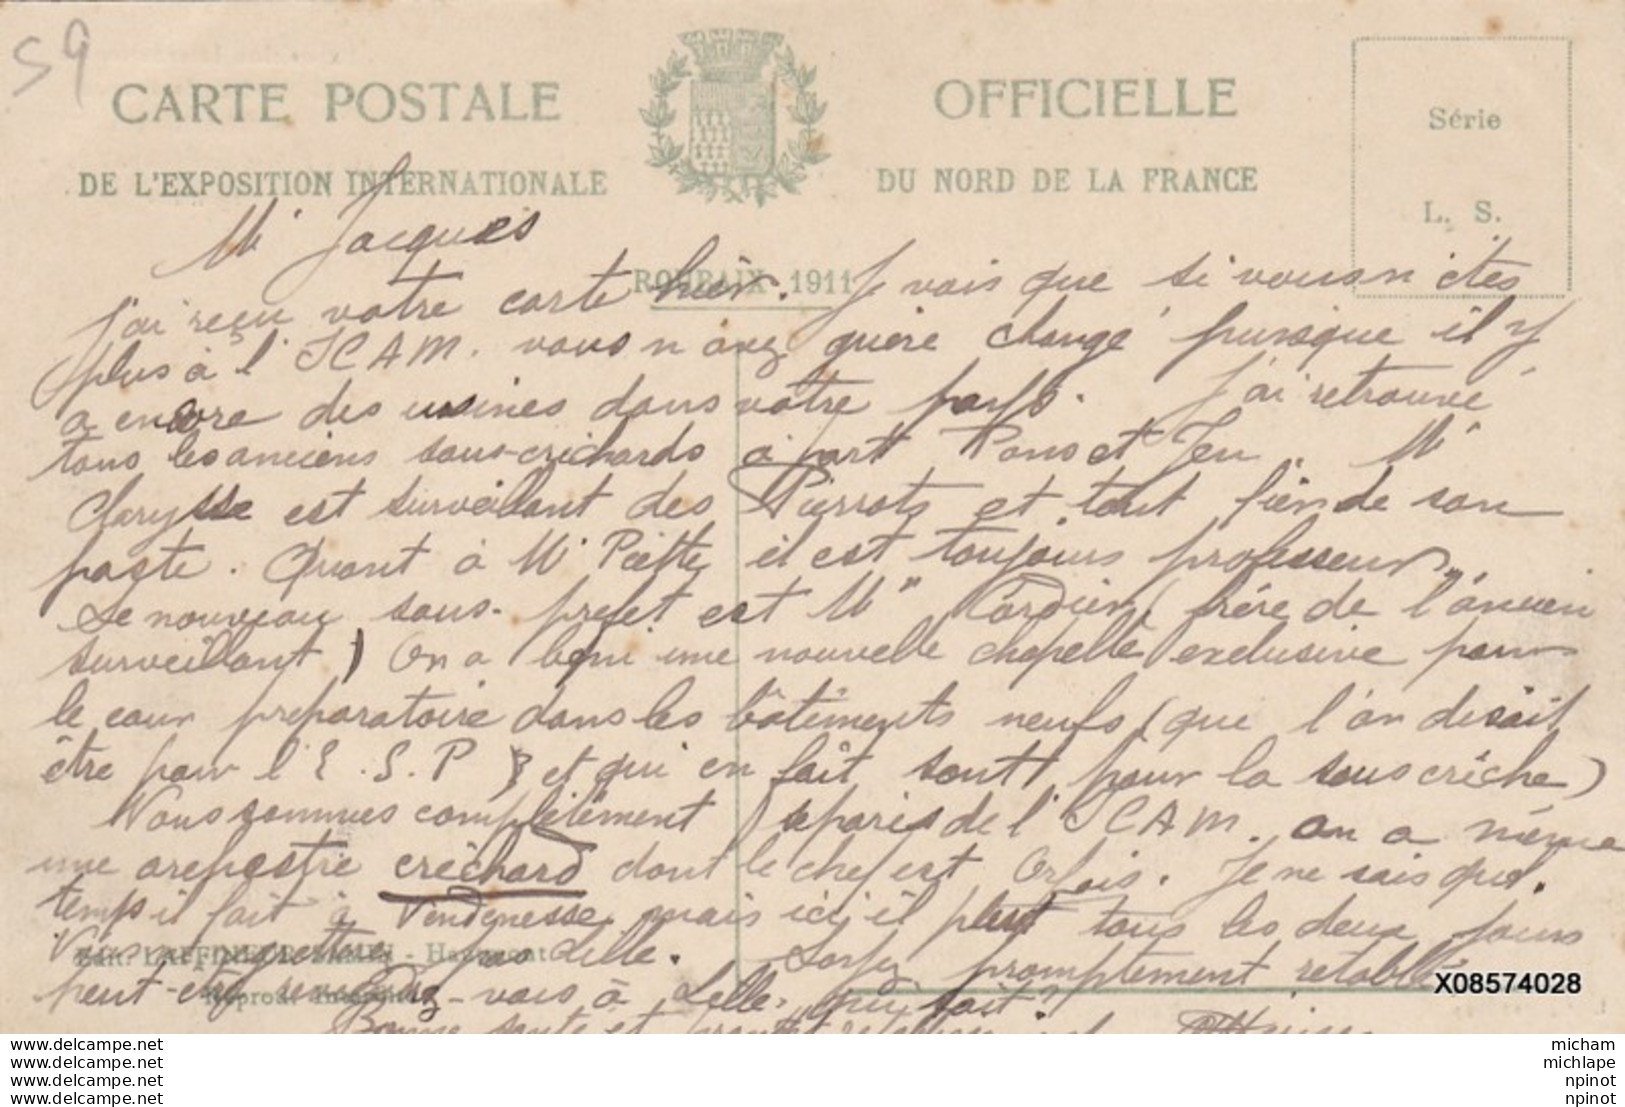 59
CARTE POSTALE OFFICIELLE
DE L'EXPOSITION INTERNATIONALE DU NORD DE LA FRANCE
ROUBAIX 1911
Série
L. S.
Mr Jacques
J'ai reçu votre carte hier. Je vois que si vous n'êtes
plus à l'ICAM. vous n'avez guère changé puisque il y
a encore des usines dans votre pays. J'ai retrouvé
tous les anciens sous-crèchards à part Pons et Jeu. Mr
Charysse est surveillant des Pierrots et tout fier de son
poste. Quant à Mr Piette il est toujours professeur.
Le nouveau sous-préfet est Mr Cordier (frère de l'ancien
surveillant) On a béni une nouvelle chapelle exclusive pour
le cour préparatoire dans les bâtiments neufs (que l'on disait
être pour l'E.S.P) et qui en fait sont pour la sous crèche)
Nous sommes complètement séparés de l'ICAM. on a même
une orchestre crèchard dont le chef est Orlais. Je ne sais quel
temps il fait à Vendenesse mais ici il pleut tous les deux jours
Vous ne regrettez pas Lille. Soyez promptement rétabli
peut-être revenez-vous à Lille, "qui sait"?
Bonne santé et
Edit. LAFFINEUR-SAMIN - Hautmont
Reprod. Interdite
X08574028
www.delcampe.net
www.delcampe.net
www.delcampe.net
www.delcampe.net
micham
michlape
npinot
npinot